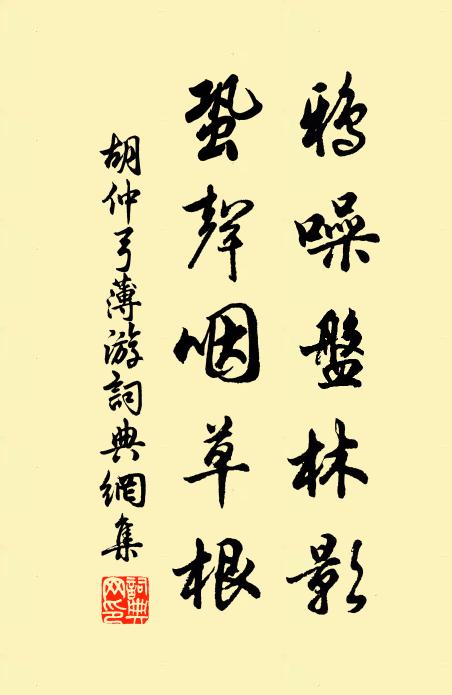 鴉噪盤林影
蛩聲咽草根
胡仲弓薄游詞典網集
詞典网印